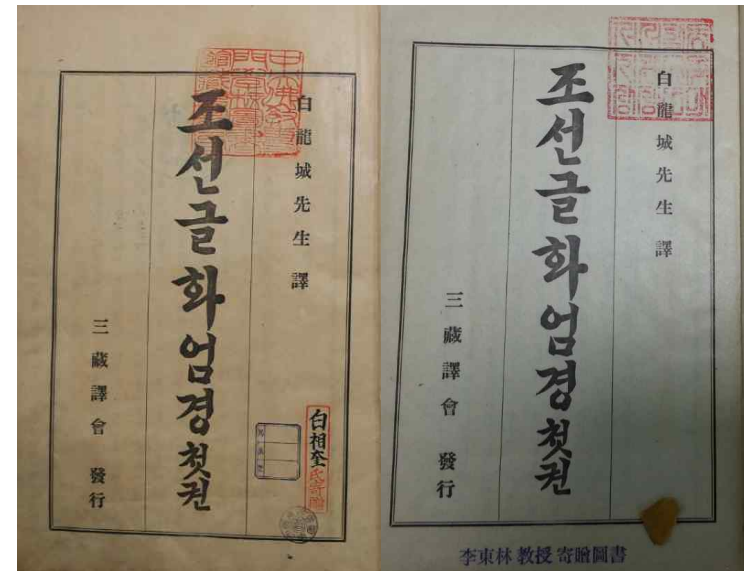 白龍城先生 譯
조선글화엄경 첫권
三藏譯會 發行
白相奎氏寄贈
白龍城先生 譯
조선글화엄경 첫권
三藏譯會 發行
李東林 教授 寄贈圖書